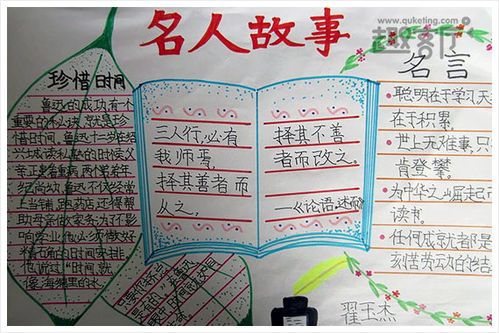 www.quketing.com
趣客厅
名人故事
珍惜时间
鲁迅的成功有个
重要的秘诀,就是珍
惜时间。鲁迅十二岁在绍
兴城读私塾的时候父
亲正患着重病,两个弟弟年
纪尚幼,鲁迅不仅经常
上当铺,跑药店,还得帮
助母亲做家务,为不影
响学业,他必须做好
精确的时间安排
三人行,必有
我师焉。
择其善者而
从之,
择其不善
者而改之。
——《论语·述而》
名言
聪明在于学习,天
在于积累。
世上无难事,只
肯登攀。
为中华之崛起而
读书。
任何成就都是
刻苦劳动的结
翟玉杰